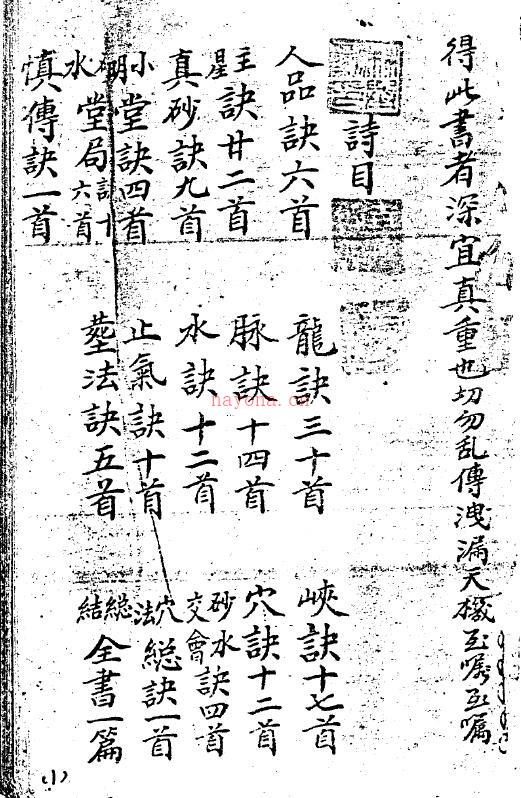 得此書者深宜真重也切勿乱傳洩漏天機至嘱至嘱
詩目
人品訣六首 龍訣三十首 峽訣十七首
主星訣廿二首 脉訣十四首 穴訣十二首
真砂訣九首 水訣十二首 砂水交會訣四首
小明堂訣四首 止氣訣十首 穴法総訣一首
水堂局訣十六首 塟法訣五首 総結全書一篇
慎傳訣一首
(1)
hayona.com